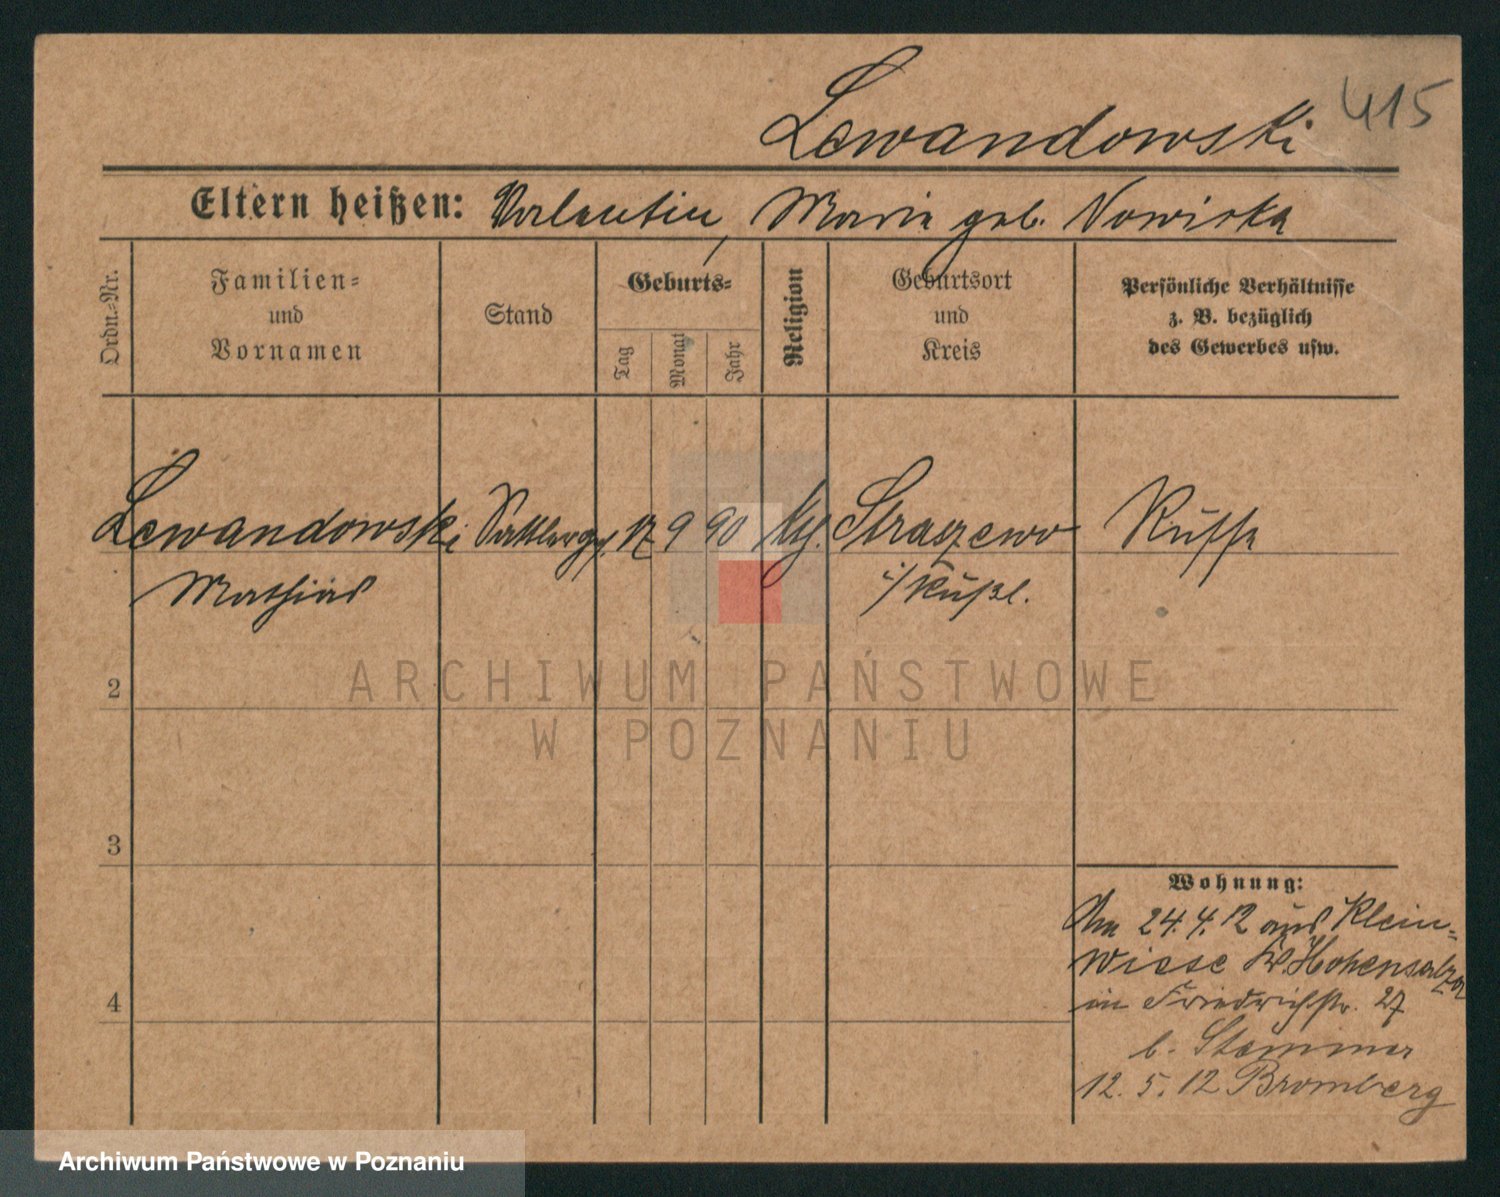 415
Lewandowski
Eltern heißen: Valentin, Marie geb. Nowicka
Ordn.-Nr.
Familien-
und
Vornamen
Stand
Geburts-
Tag
Monat
Jahr
Religion
Geburtsort
und
Kreis
Persönliche Verhältnisse
z. B. bezüglich
des Gewerbes usw.
Lewandowski Sattlerges. 17 9 90 Straszewo Russe
Mathias i/Rußl.
2
3
4
Wohnung:
24.4.12 aus Klein-
wiese Kr. Hohensalza
in Friedrichstr. 27
b. Stemmer
12.5.12 Bromberg
ARCHIWUM PAŃSTWOWE
W POZNANIU
Archiwum Państwowe w Poznaniu